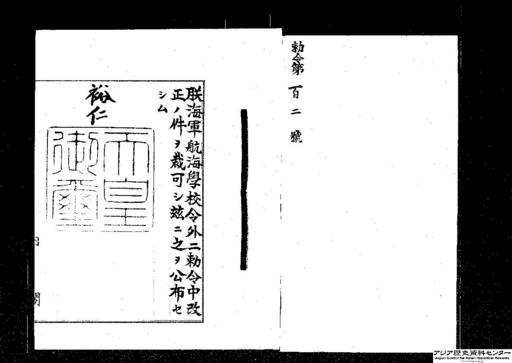 勅令第百二號
朕海軍航海學校令外二勅令中改
正ノ件ヲ裁可シ茲ニ之ヲ公布セ
シム
裕仁
天皇
御璽
内
閣
アジア歴史資料センター
Japan Center for Asian Historical Records